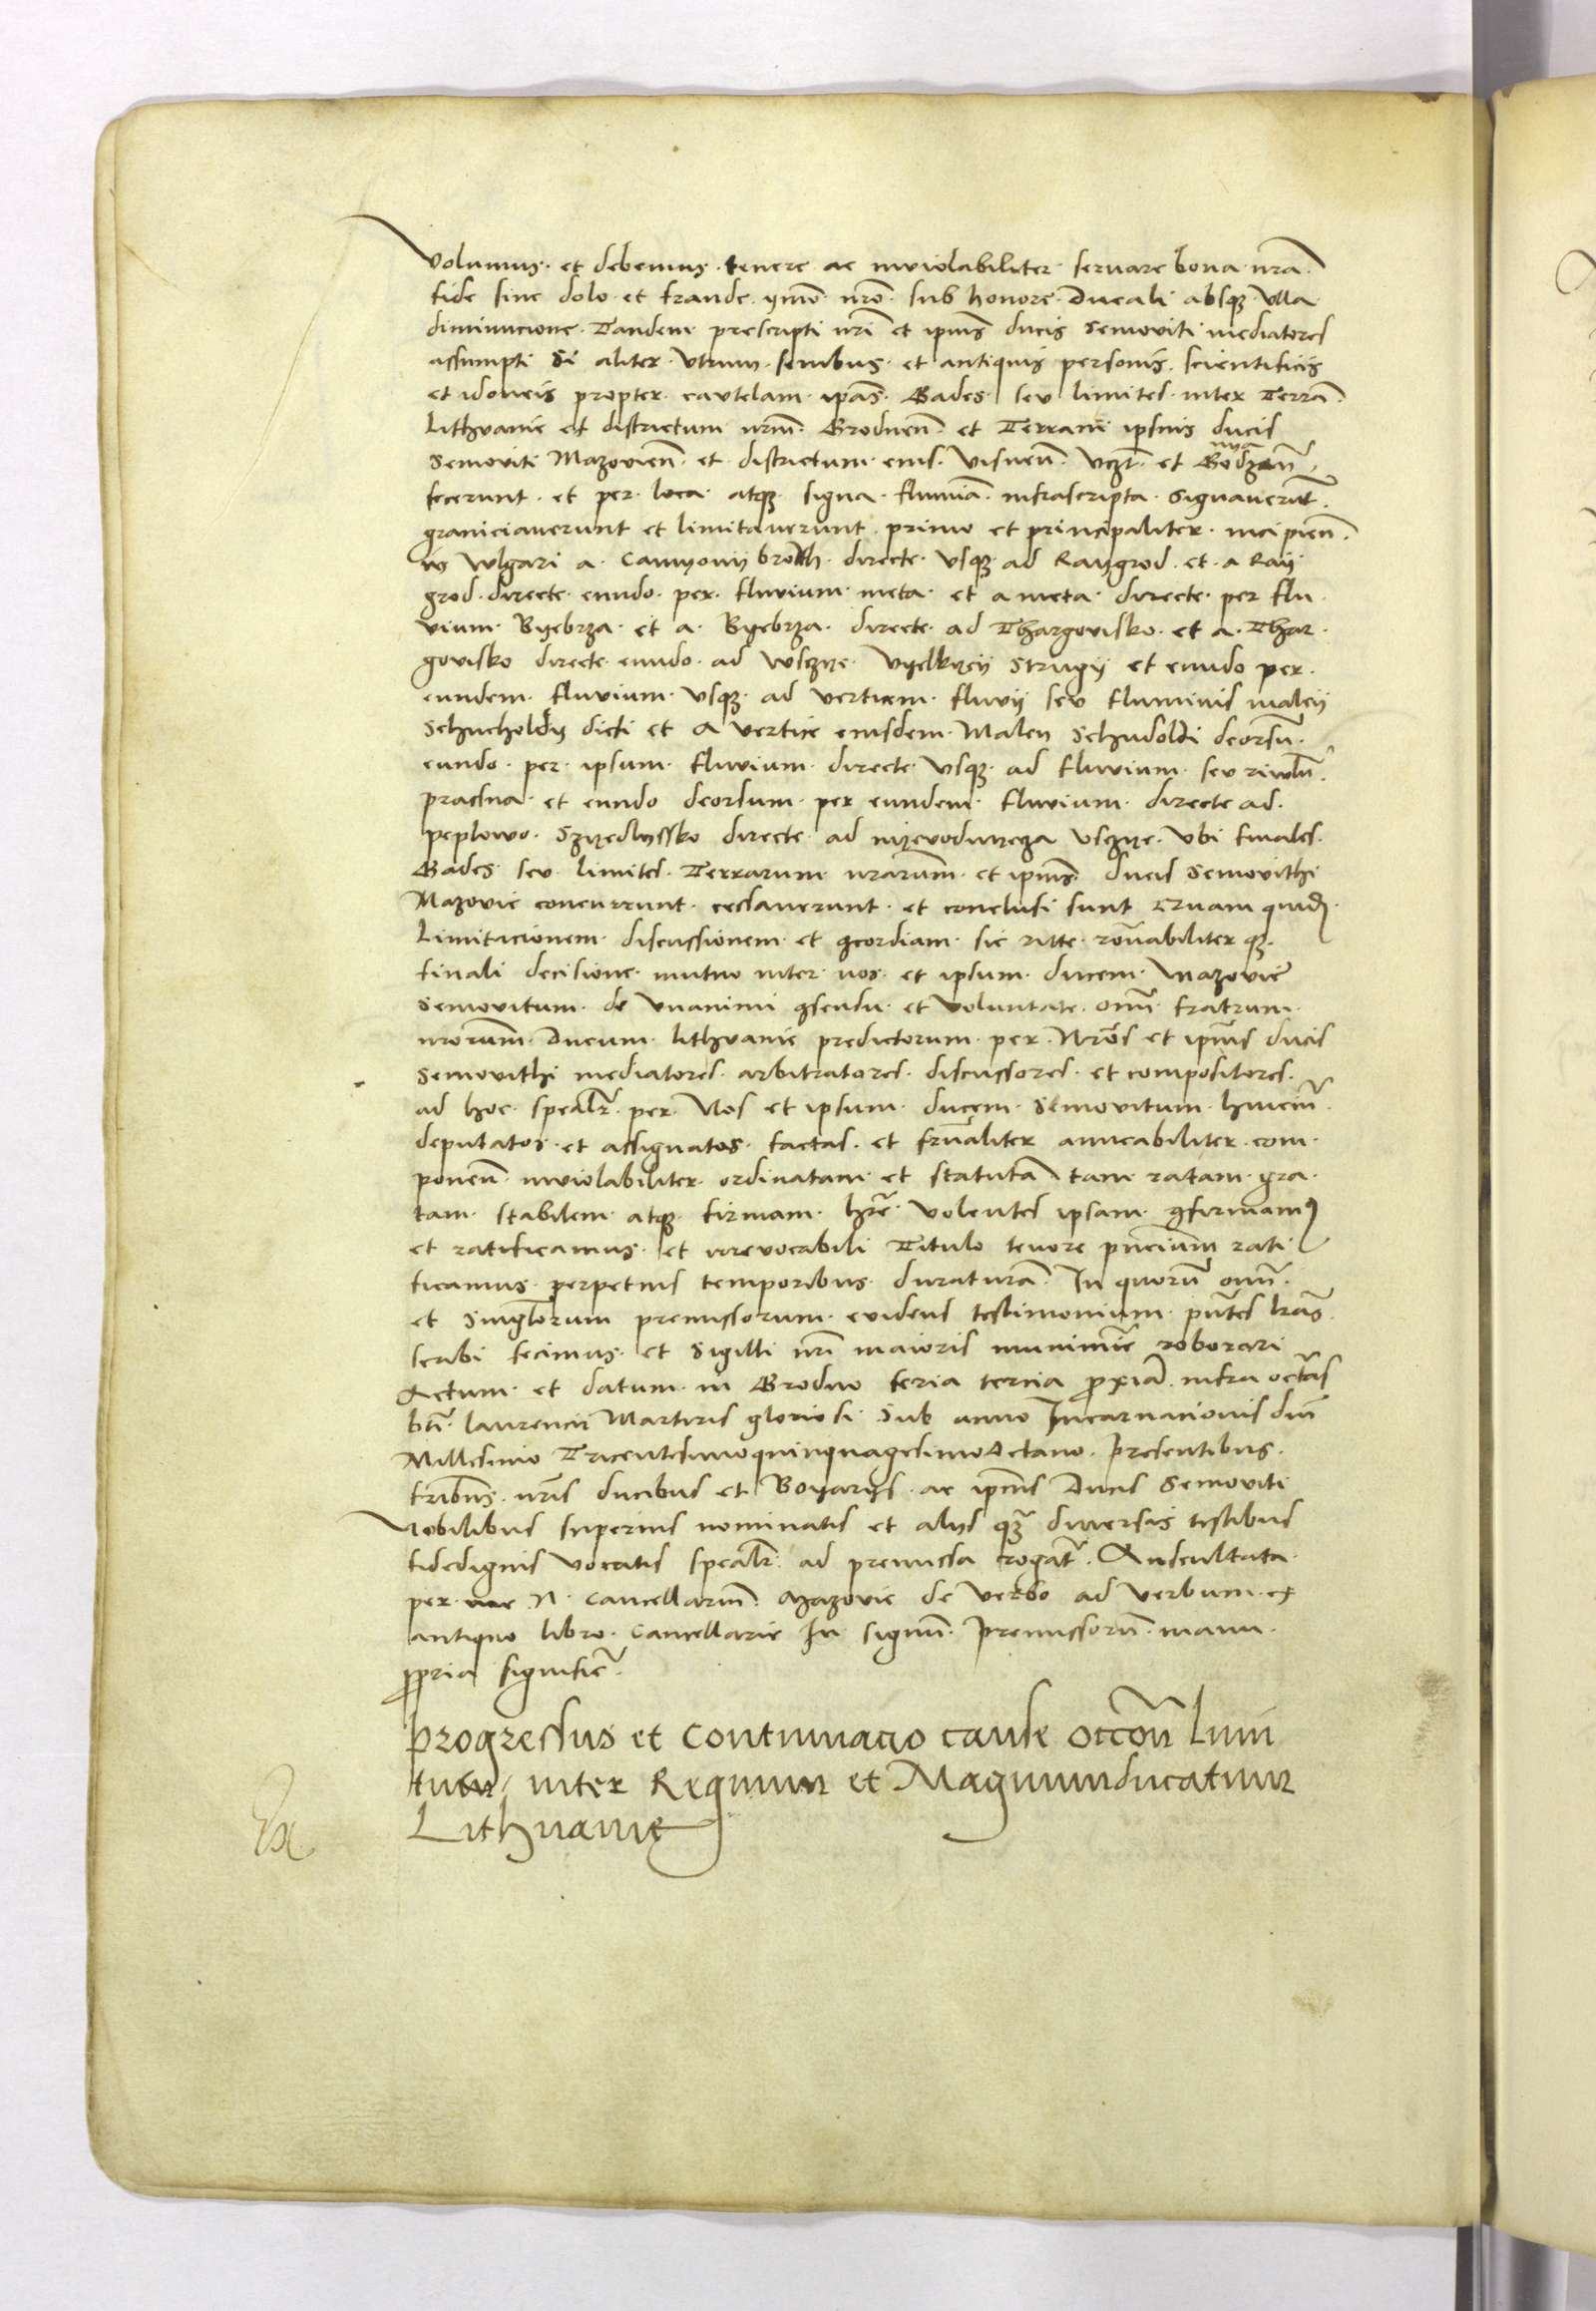 volumus. et debemus. tenere ac inviolabiliter. servare bona nr̄a.
fide sine dolo et fraude. ymo. nr̄o. sub honore Ducali absq̨ ulla
diminucione. Tandem prescripti nr̄i et ipius̄ ducis Semoviti mediatores
assumpti Si aliter utrum. senibus. et antiquis personis. scientificis
et idoneis propter. cautelam ipas̄. Gades seu limites inter Terrā.
Lithvanie et districtum nr̄m. Grodnen̄. et Terram ipsius ducis
Semoviti Mazovien̄. et districtum eius. Visnen̄. vcz̄t. et
fecerunt. et per. loca atq̨ signa. fluviā. infrascripta. signaverūt.
graniciaverunt et limitaverunt. primo et principaliter incipien̄.
in vulgari a. Camyonÿ broth. directe. usq̨ ad Raygrod. et. a Raÿ
grod. directe. eundo. per. fluvium meta et a meta directe per flu
vium. Byebrza. et a. Byebrza directe ad Thargovisko. et a. Thar
govisko directe eundo. ad Wsczye. Vyelkyeÿ Strugÿ et eundo per.
eundem. fluvium. usq̨ ad verticem. fluvÿ seu fluminis maleÿ
Schucholdÿ dicti et a vertice eiusdem. Maley Schudoldi deorsū.
eundo. per ipsum fluvium directe usq̨ ad fluvium seu rivulū.
prasna et eundo deorsum per eundem fluvium directe ad.
peplowo. Szyedlyssko directe ad nyevodnycza vsczye. ubi finales.
Gades seu limites. Terrarum nr̄arum. et ipius̄. ducis Semovithi
Mazovie concurrunt. cessaverunt. et conclusi sunt quidē
Limitacionem. discussionem et ꝯcordiam sic ritte. rōnabiliter q̨.
finali decisione mutuo inter nos. et ipsum ducem Mazovie
Semovitum. de unanimi ꝯsensu et voluntate. omn̄. fratrum.
nr̄orum. Ducum Lithvanie predictorum per Nr̄os et ipius̄ ducis
Semovithi mediatores arbitratores. discussores. et compositores.
ad hoc spealr̄. per Nos et ipsum ducem Semovitum. huiem̄.
deputatos. et assignatos. factas. et frūaliter amicabiliter. com
ponen̄. inviolabiliter ordinatam et statutā tam ratam gra
tam stabilem atq̨ firmam. hr̄e. volentes ipsam. ꝯfirmamꝯ
et ratificamus. et irrevocabili Titulo tenore pn̄cium rati
ficamus perpetuis temporibus. duraturā. In quorū omn̄.
et singlorum premissorum evidens testimonium. pn̄tes lr̄as.
scribi fecimus. et Sigilli nr̄i maioris munimīe roborari
Actum et datum in Grodno feria tercia ꝓxia. infra octās
bt̄i. Laurencii Martiris gloriosi Sub anno Incarnacionis dn̄i
Millesimo Tricentesimoquinquagesimooctavo. presentibus.
frībus. nr̄is ducibus et Boyarys ac ipius̄ Ducis Semoviti
Nobilibus superius nominatis et alÿs qz̄ diversis testibus
fidedignis vocatis spealr̄. ad premissa rogat̄. Auscultata.
per N. Cancellariū. Mazovie de verbo ad verbum. ex
antiquo libro. Cancellarie In signū. premissorū manu.
ꝓpria signific̄.
Progressus et continuacio cause occōn̄ limi
tum inter Regnum et Magnumducatum
Lithuanię